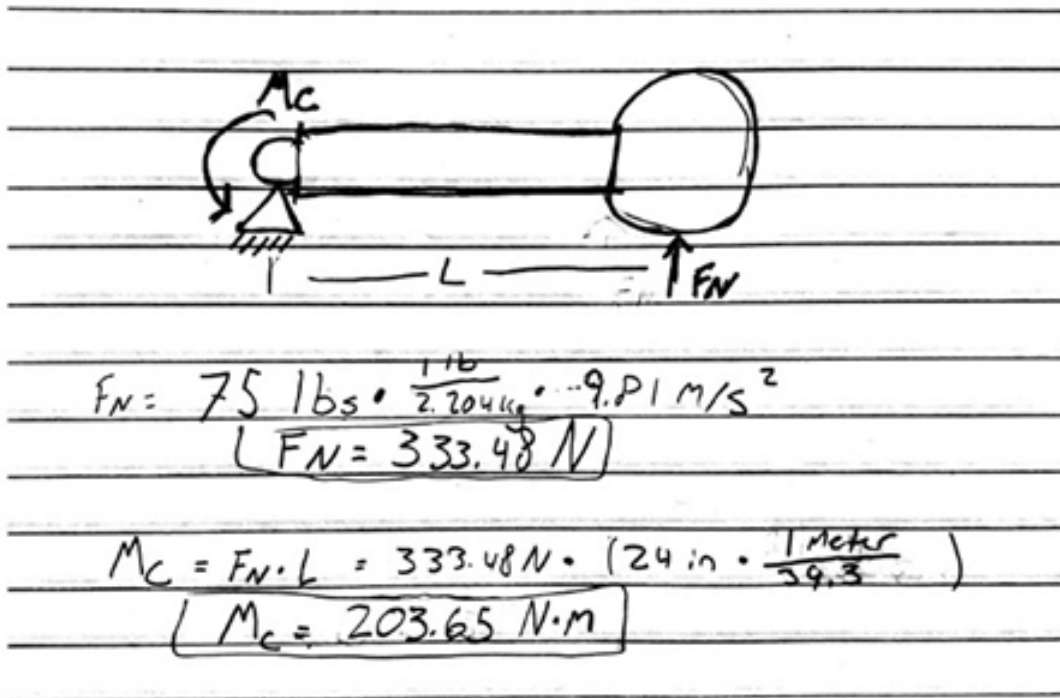 Mc
L
FN
FN = 75 lbs · 1 lb / 2.204 kg · 9.81 m/s²
FN = 333.48 N
Mc = FN · L = 333.48 N · (24 in · 1 Meter / 39.3)
Mc = 203.65 N·m